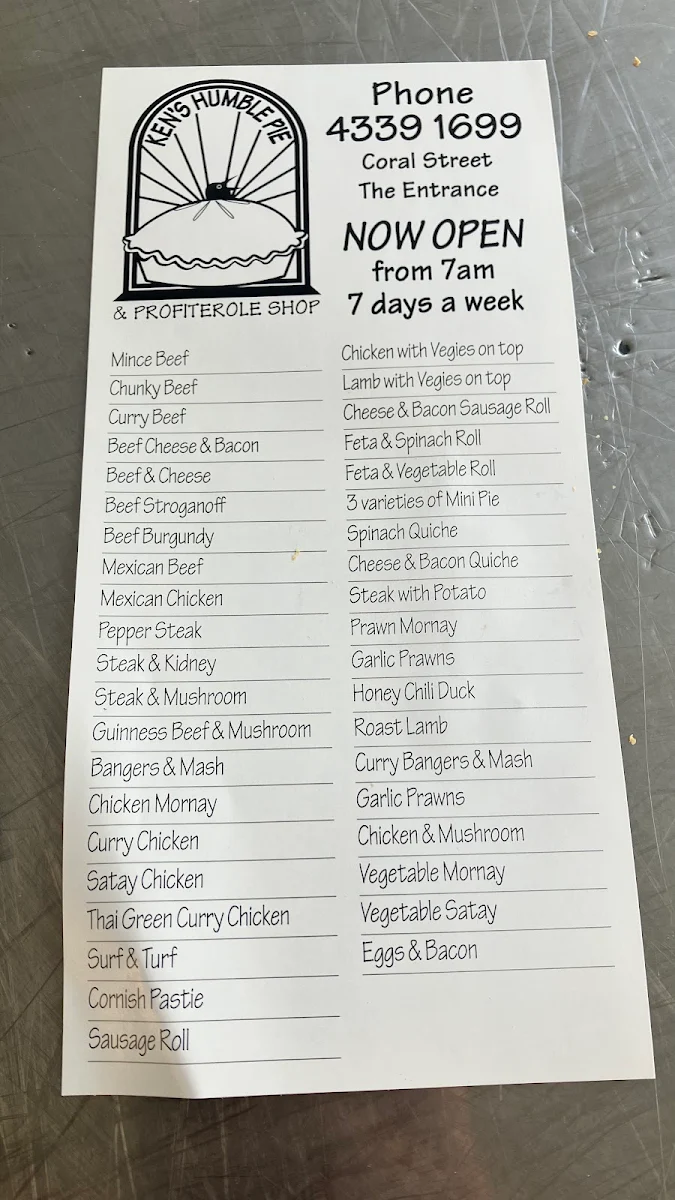 KEN'S HUMBLE PIE
& PROFITEROLE SHOP
Phone
4339 1699
Coral Street
The Entrance
NOW OPEN
from 7am
7 days a week
Mince Beef
Chunky Beef
Curry Beef
Beef Cheese & Bacon
Beef & Cheese
Beef Stroganoff
Beef Burgundy
Mexican Beef
Mexican Chicken
Pepper Steak
Steak & Kidney
Steak & Mushroom
Guinness Beef & Mushroom
Bangers & Mash
Chicken Mornay
Curry Chicken
Satay Chicken
Thai Green Curry Chicken
Surf & Turf
Cornish Pastie
Sausage Roll
Chicken with Vegies on top
Lamb with Vegies on top
Cheese & Bacon Sausage Roll
Feta & Spinach Roll
Feta & Vegetable Roll
3 varieties of Mini Pie
Spinach Quiche
Cheese & Bacon Quiche
Steak with Potato
Prawn Mornay
Garlic Prawns
Honey Chili Duck
Roast Lamb
Curry Bangers & Mash
Garlic Prawns
Chicken & Mushroom
Vegetable Mornay
Vegetable Satay
Eggs & Bacon